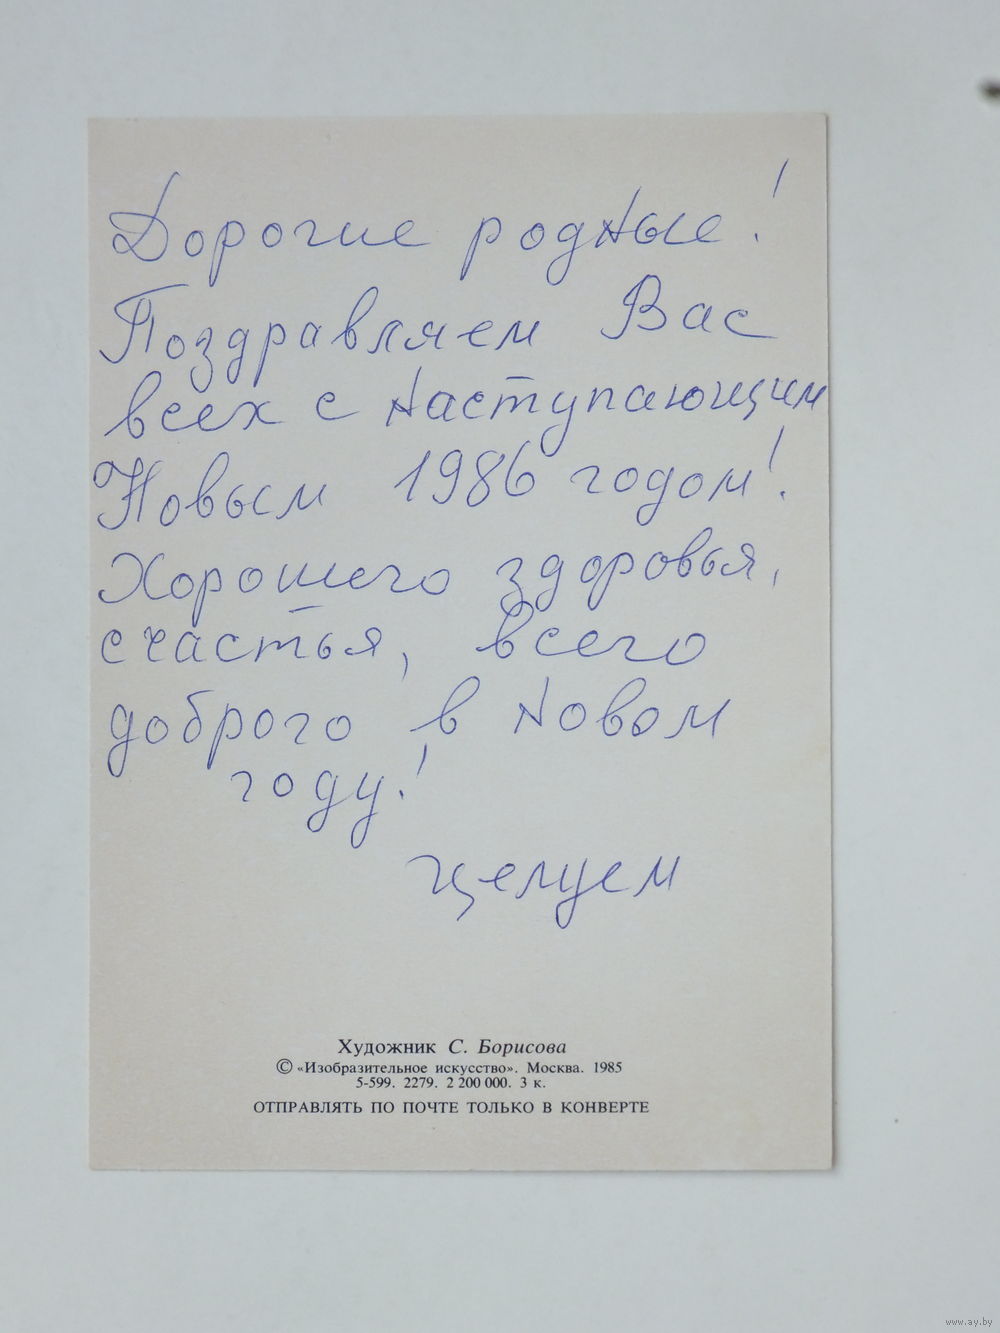 Дорогие родные!
Поздравляем Вас
всех с наступающим
Новым 1986 годом!
Хорошего здоровья,
счастья, всего
доброго в новом
году!
целуем
Художник С. Борисова
© «Изобразительное искусство». Москва. 1985
5-599. 2279. 2 200 000. 3 к.
ОТПРАВЛЯТЬ ПО ПОЧТЕ ТОЛЬКО В КОНВЕРТЕ
www.ay.by